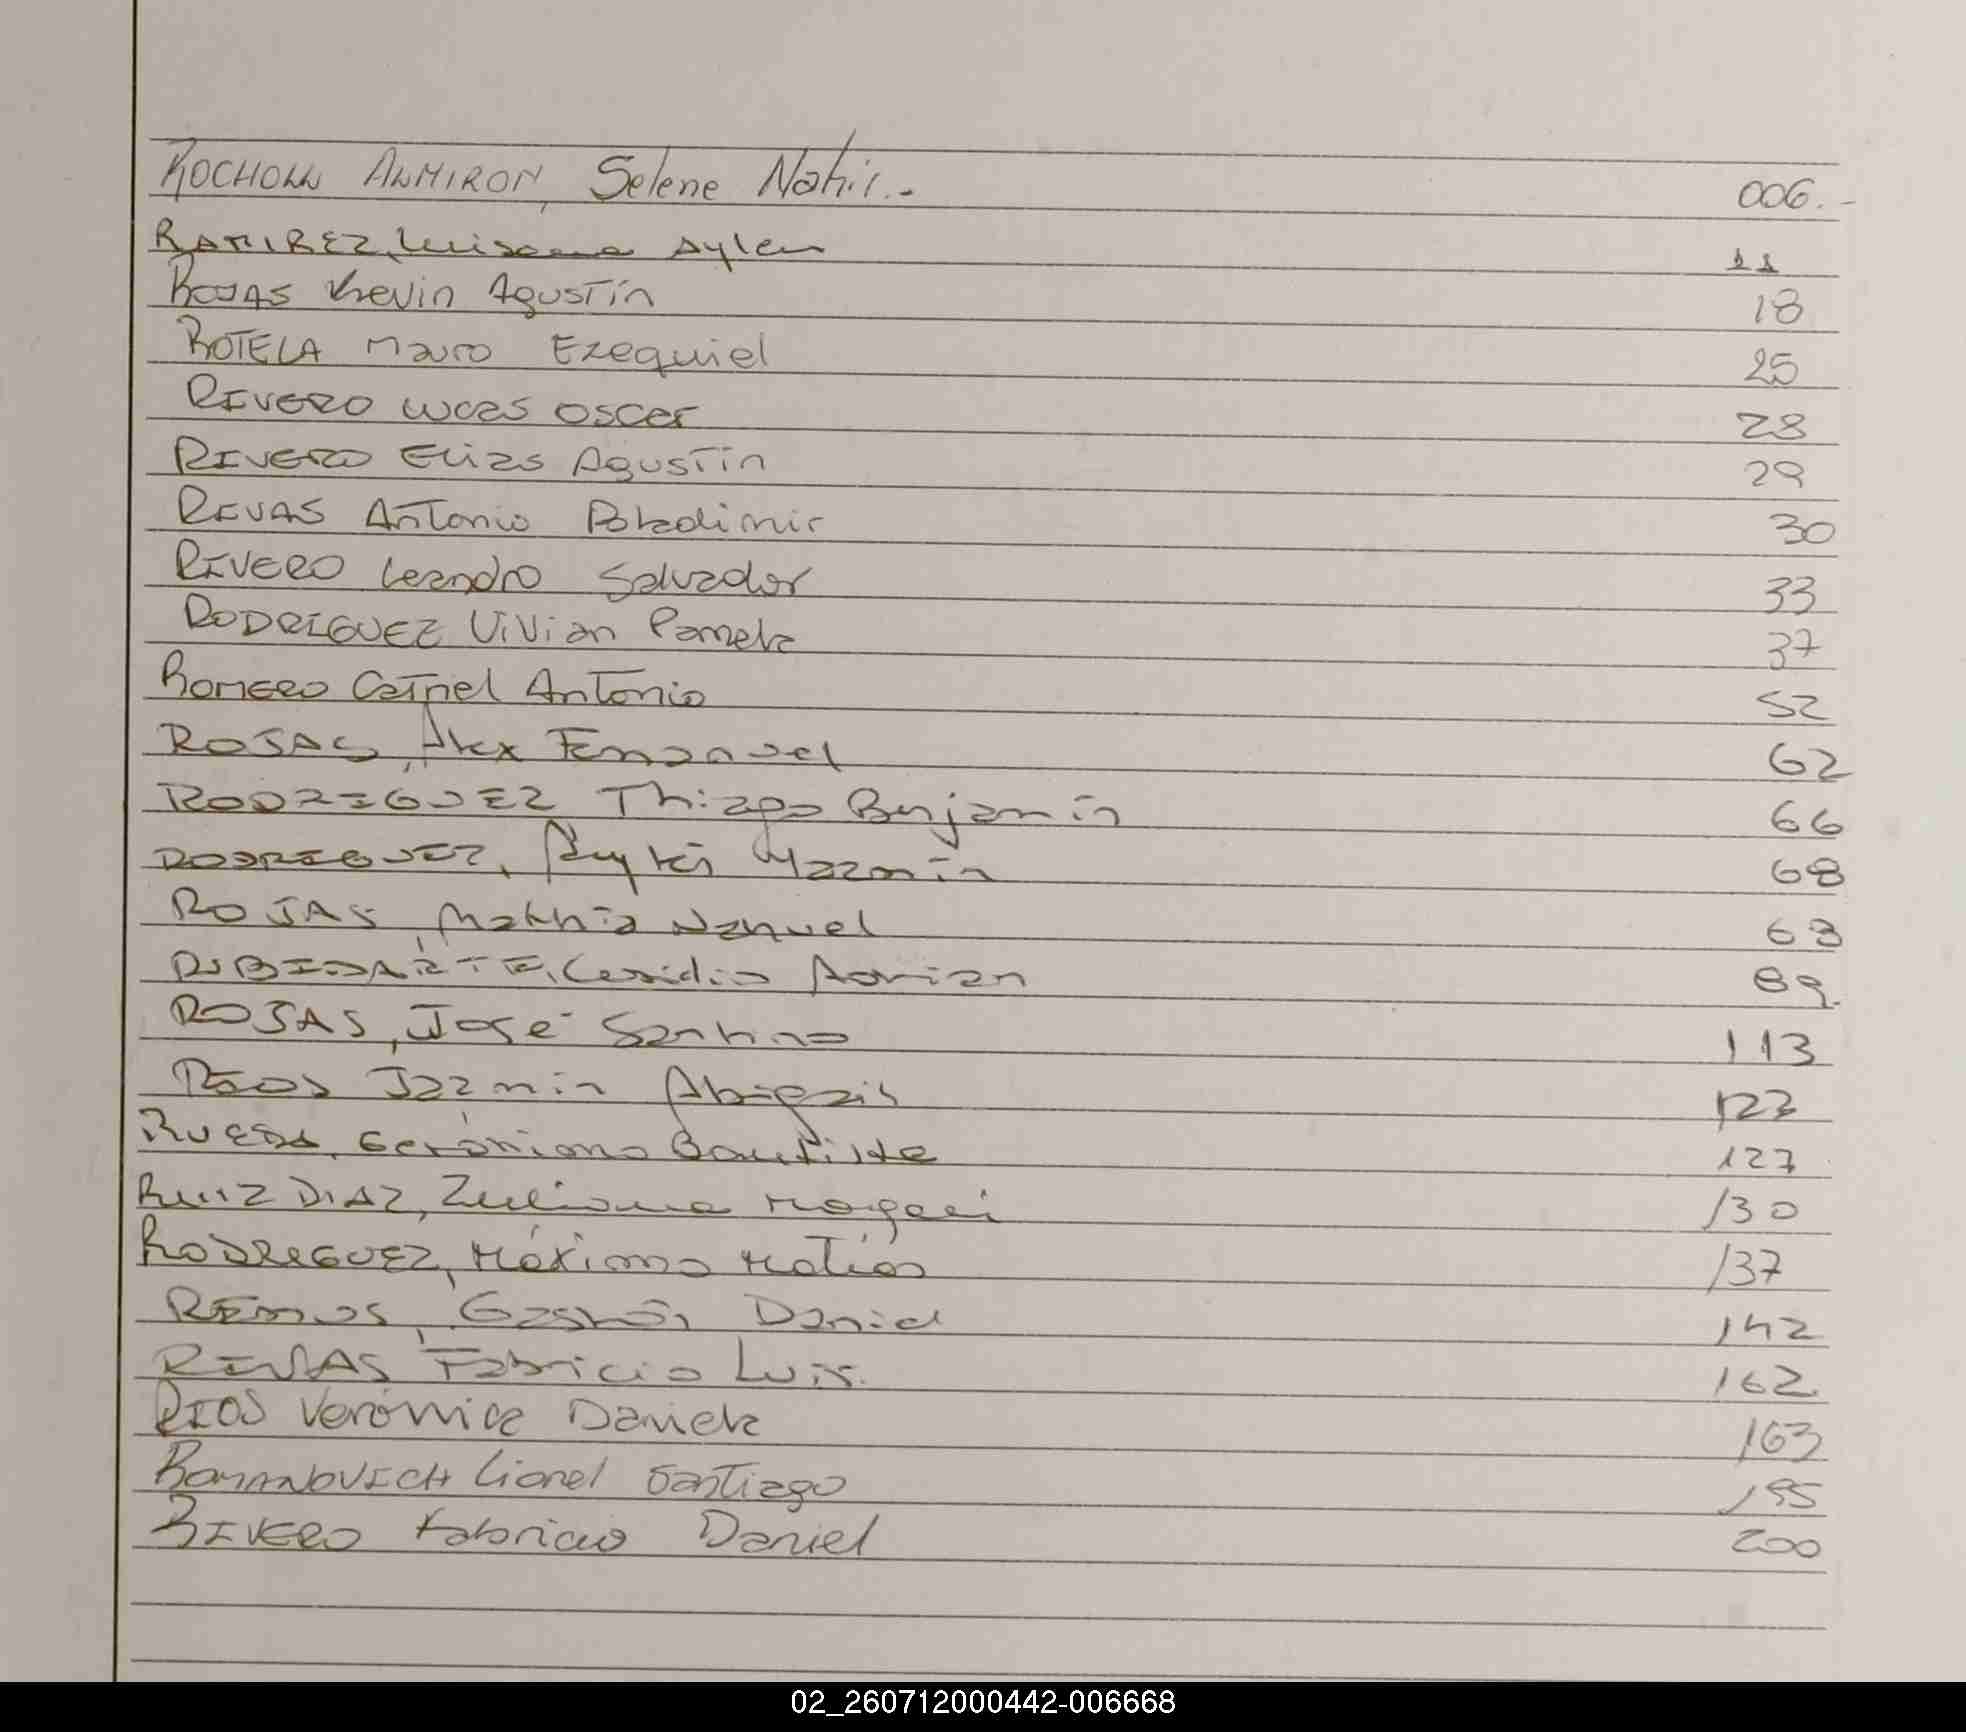 ROCHOLL ALMIRON, Selene Nahir.- 006.-
RAMIREZ, Luisana Aylen 11
ROJAS Kevin Agustín 18
ROTELA Mauro Ezequiel 25
RIVERO Lucas Oscar 28
RIVERO Elias Agustín 29
RIVAS Antonio 30
RIVERO Leandro Salvador 33
RODRIGUEZ Vivian Pamela 37
ROMERO Catriel Antonio 52
ROJAS, Alex Emanuel 62
RODRIGUEZ Thiago Benjamín 66
RODRIGUEZ, Yazmín 68
ROJAS, Mathia Nahuel 69
Adrian 89.
ROJAS, José Santino 113
RIOS Jazmin Abigail 122
RUEDA, Gerónimo Bautista 127
RUIZ DIAZ, Zuliana Magali 130
RODRIGUEZ, Máximo Matías 137
RAMOS, Gastón Daniel 142
RIVAS, Fabricio Luis. 162
RIOS Verónica Daniela 163
ROMANOVICH Lionel Santiago 195
RIVERO Fabricio Daniel 200
02_260712000442-006668